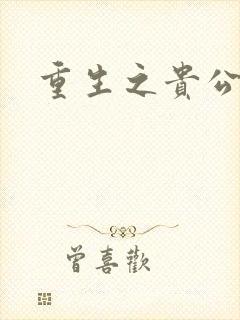 重生之貴公
曾喜歡